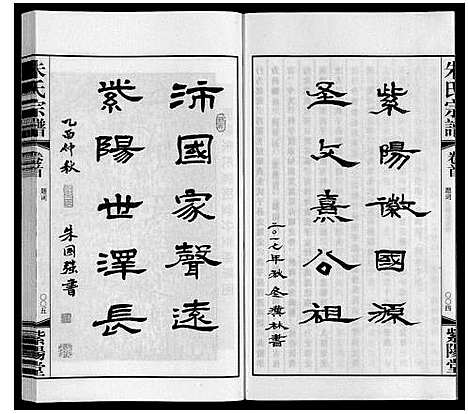 朱氏宗譜
卷首
題詞
〇〇四
紫陽堂
紫陽徽國源
圣文熹公祖
二〇一七年秋
書
沛國家聲遠
紫陽世澤長
乙酉仲秋
朱國強書
朱氏宗譜
卷首
題詞
〇〇五
紫陽堂